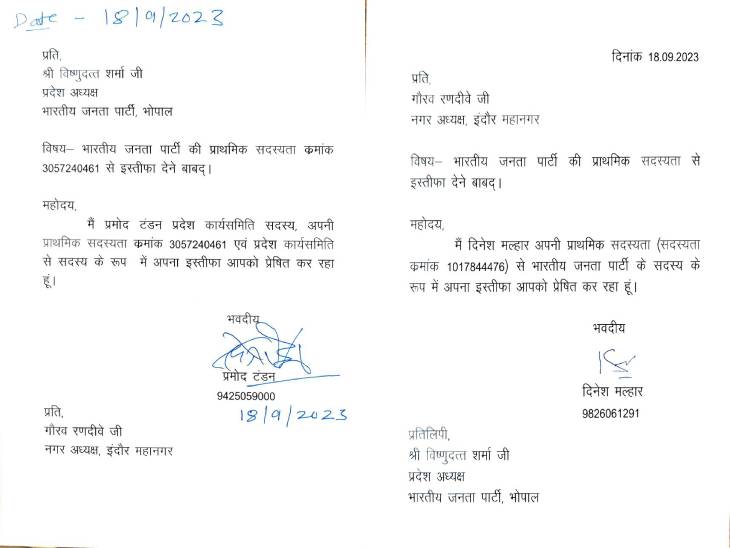 Date - 18/9/2023
प्रति,
श्री विष्णुदत्त शर्मा जी
प्रदेश अध्यक्ष
भारतीय जनता पार्टी, भोपाल
विषय– भारतीय जनता पार्टी की प्राथमिक सदस्यता क्रमांक
3057240461 से इस्तीफा देने बाबद्।
महोदय,
मैं प्रमोद टंडन प्रदेश कार्यसमिति सदस्य, अपनी
प्राथमिक सदस्यता क्रमांक 3057240461 एवं प्रदेश कार्यसमिति
से सदस्य के रूप में अपना इस्तीफा आपको प्रेषित कर रहा
हूं।
भवदीय
प्रमोद टंडन
9425059000
18/9/2023
प्रति,
गौरव रणदीवे जी
नगर अध्यक्ष, इंदौर महानगर
दिनांक 18.09.2023
प्रति,
गौरव रणदीवे जी
नगर अध्यक्ष, इंदौर महानगर
विषय– भारतीय जनता पार्टी की प्राथमिक सदस्यता से
इस्तीफा देने बाबद्।
महोदय,
मैं दिनेश मल्हार अपनी प्राथमिक सदस्यता (सदस्यता
क्रमांक 1017844476) से भारतीय जनता पार्टी के सदस्य के
रूप में अपना इस्तीफा आपको प्रेषित कर रहा हूं।
भवदीय
दिनेश मल्हार
9826061291
प्रतिलिपी,
श्री विष्णुदत्त शर्मा जी
प्रदेश अध्यक्ष
भारतीय जनता पार्टी, भोपाल